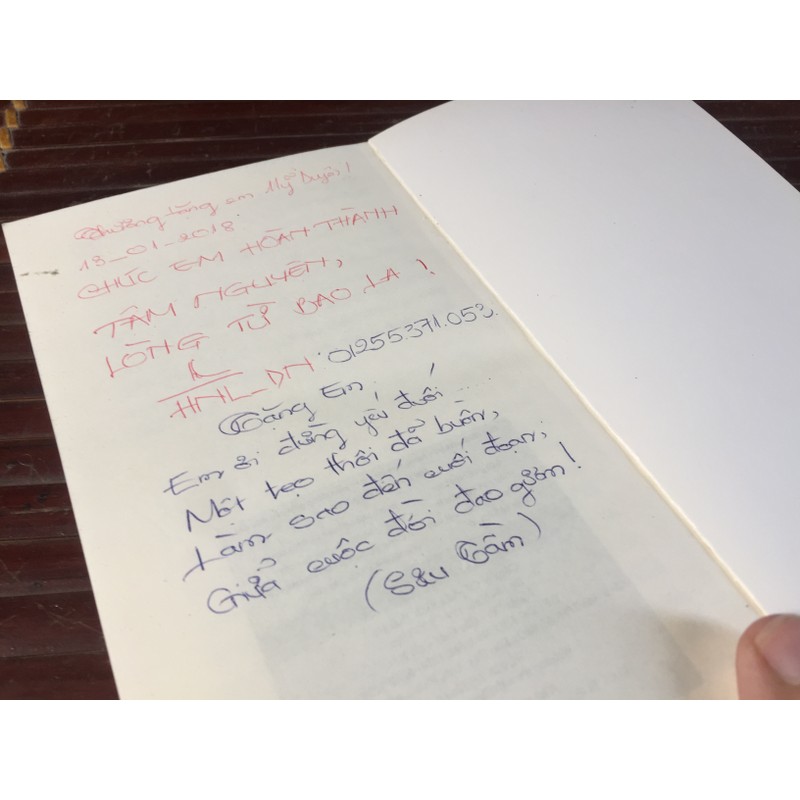 Thương tặng em Mỹ Duyên!
13-01-2018.
CHÚC EM HOÀN THÀNH
TÂM NGUYỆN,
LÒNG TỪ BAO LA!
HNL-DN: 01255.371.053.
Tặng Em
Em ơi đừng yếu đuối....
Một tẹo thôi đã buồn,
Làm sao đến cuối đoạn,
Giữa cuộc đời đao gươm!
(Sáu Tầm)